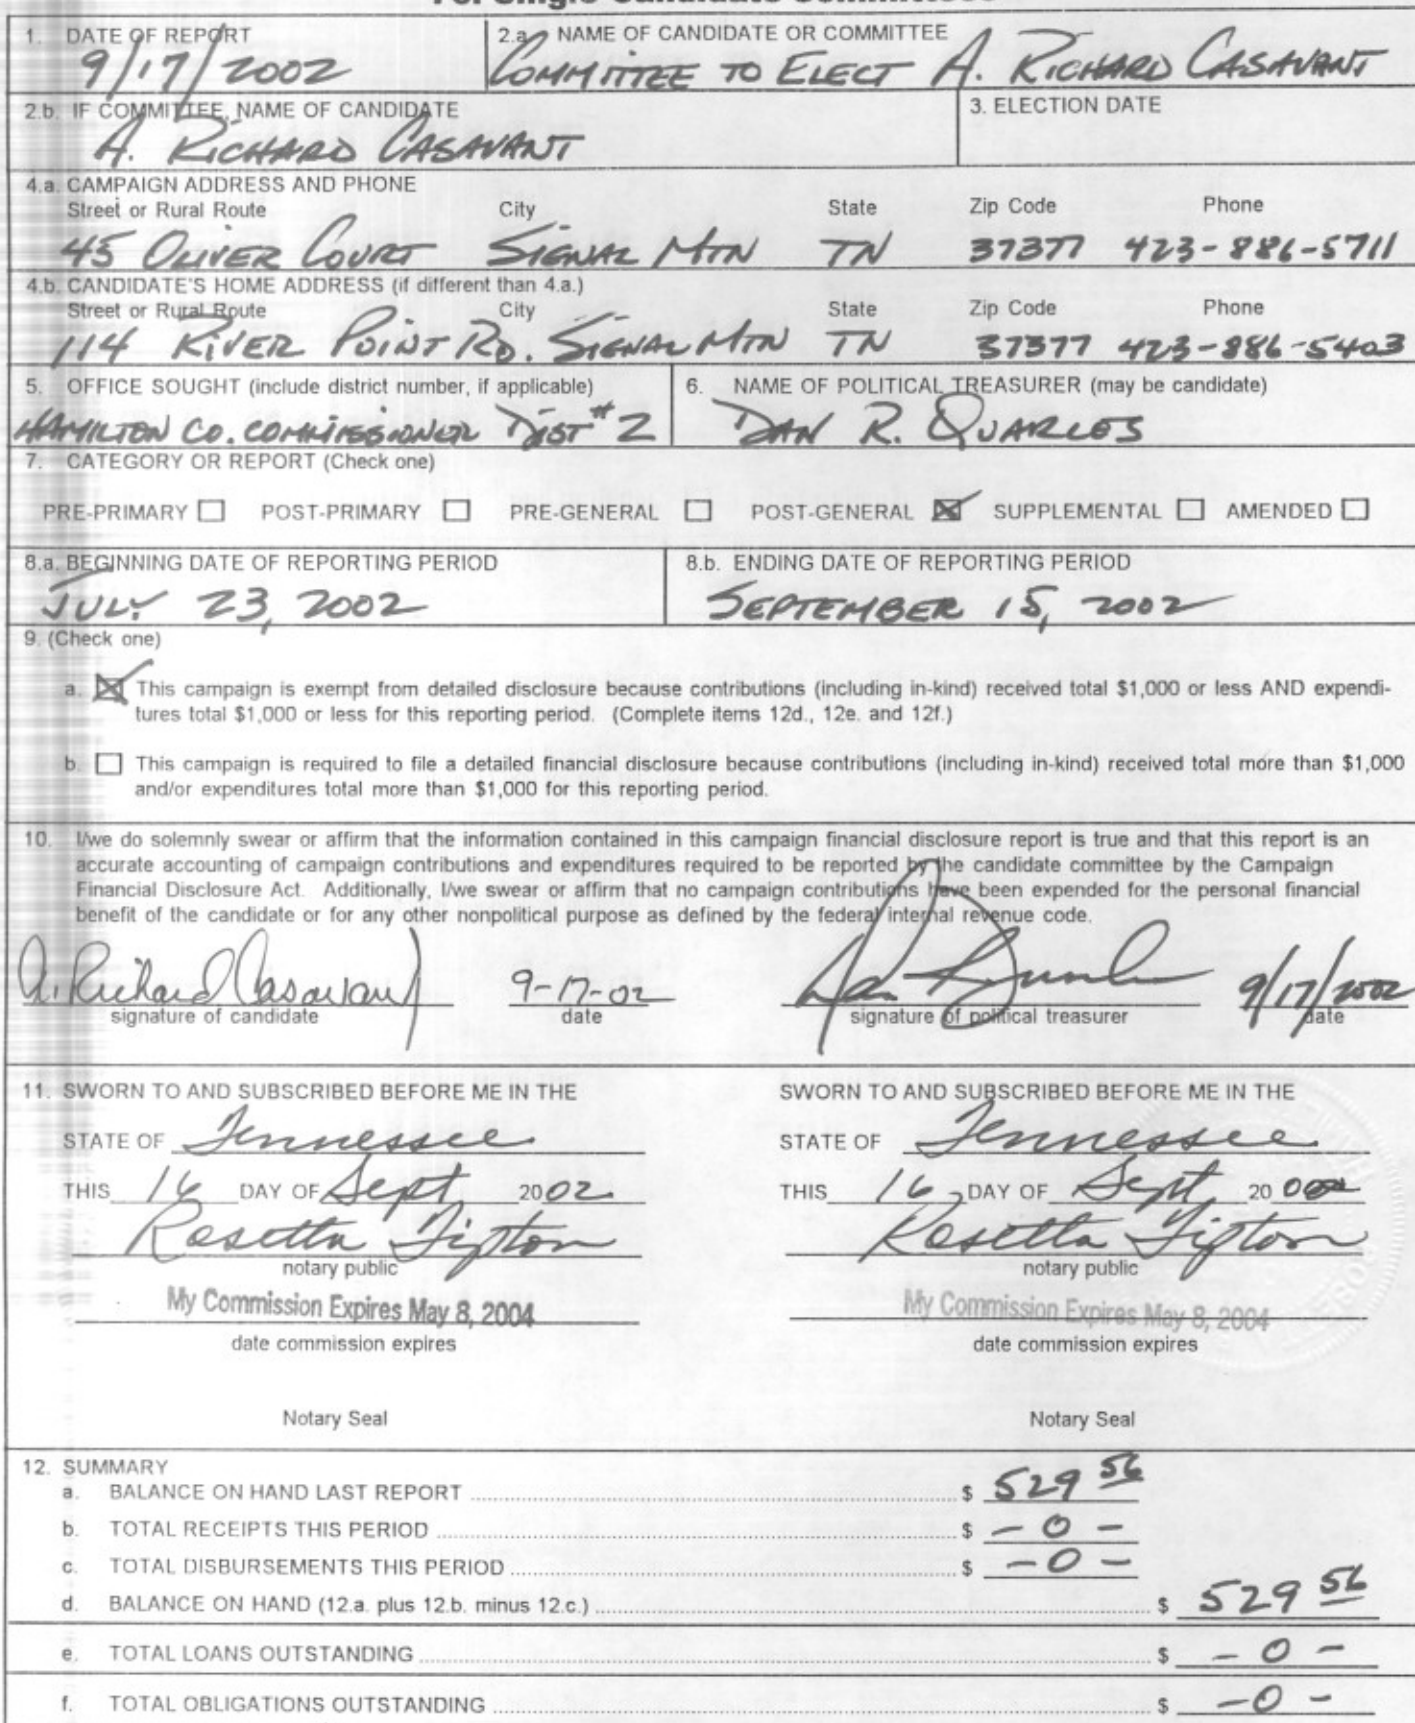 1. DATE OF REPORT
9/17/2002
2.a. NAME OF CANDIDATE OR COMMITTEE
COMMITTEE TO ELECT A. RICHARD CASAVANT
2.b. IF COMMITTEE, NAME OF CANDIDATE
A. RICHARD CASAVANT
3. ELECTION DATE
4.a. CAMPAIGN ADDRESS AND PHONE
Street or Rural Route City State Zip Code Phone
45 OLIVER COURT SIGNAL MTN TN 37377 423-886-5711
4.b. CANDIDATE'S HOME ADDRESS (if different than 4.a.)
Street or Rural Route City State Zip Code Phone
114 RIVER POINT RD. SIGNAL MTN TN 37377 423-886-5403
5. OFFICE SOUGHT (include district number, if applicable)
HAMILTON CO. COMMISSIONER DIST #2
6. NAME OF POLITICAL TREASURER (may be candidate)
DAN R. QUARLES
7. CATEGORY OR REPORT (Check one)
PRE-PRIMARY POST-PRIMARY PRE-GENERAL POST-GENERAL SUPPLEMENTAL AMENDED
8.a. BEGINNING DATE OF REPORTING PERIOD
JULY 23, 2002
8.b. ENDING DATE OF REPORTING PERIOD
SEPTEMBER 15, 2002
9. (Check one)
a. This campaign is exempt from detailed disclosure because contributions (including in-kind) received total $1,000 or less AND expendi-
tures total $1,000 or less for this reporting period. (Complete items 12d., 12e. and 12f.)
b. This campaign is required to file a detailed financial disclosure because contributions (including in-kind) received total more than $1,000
and/or expenditures total more than $1,000 for this reporting period.
10. I/we do solemnly swear or affirm that the information contained in this campaign financial disclosure report is true and that this report is an
accurate accounting of campaign contributions and expenditures required to be reported by the candidate committee by the Campaign
Financial Disclosure Act. Additionally, I/we swear or affirm that no campaign contributions have been expended for the personal financial
benefit of the candidate or for any other nonpolitical purpose as defined by the federal internal revenue code.
A. Richard Casavant 9-17-02 9/17/2002
signature of candidate date signature of political treasurer date
11. SWORN TO AND SUBSCRIBED BEFORE ME IN THE
STATE OF Tennessee
THIS 16 DAY OF Sept 2002
Rosetta Tipton
notary public
My Commission Expires May 8, 2004
date commission expires
Notary Seal
SWORN TO AND SUBSCRIBED BEFORE ME IN THE
STATE OF Tennessee
THIS 16 DAY OF Sept, 20
Rosetta Tipton
notary public
My Commission Expires May 8, 2004
date commission expires
Notary Seal
12. SUMMARY
a. BALANCE ON HAND LAST REPORT $ 529 56
b. TOTAL RECEIPTS THIS PERIOD $ -0-
c. TOTAL DISBURSEMENTS THIS PERIOD $ -0-
d. BALANCE ON HAND (12.a. plus 12.b. minus 12.c.) $ 529 56
e. TOTAL LOANS OUTSTANDING $ -0-
f. TOTAL OBLIGATIONS OUTSTANDING $ -0-